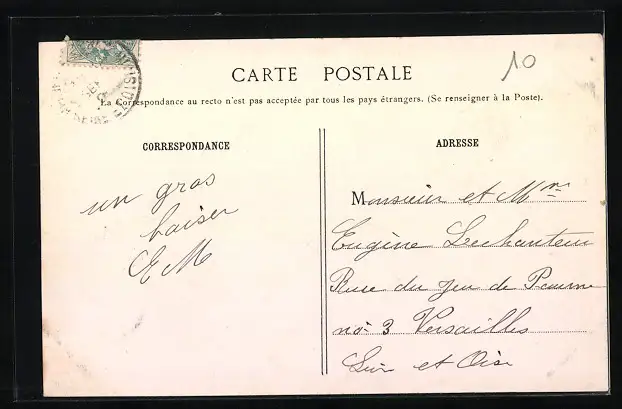 10
CARTE POSTALE
La Correspondance au recto n'est pas acceptée par tous les pays étrangers. (Se renseigner à la Poste).
CORRESPONDANCE
un gros
baiser
EM
ADRESSE
Monsieur et Mme
Eugène Lechanteur
Rue du jeu de Paume
no 3 Versailles
Sein et Oise